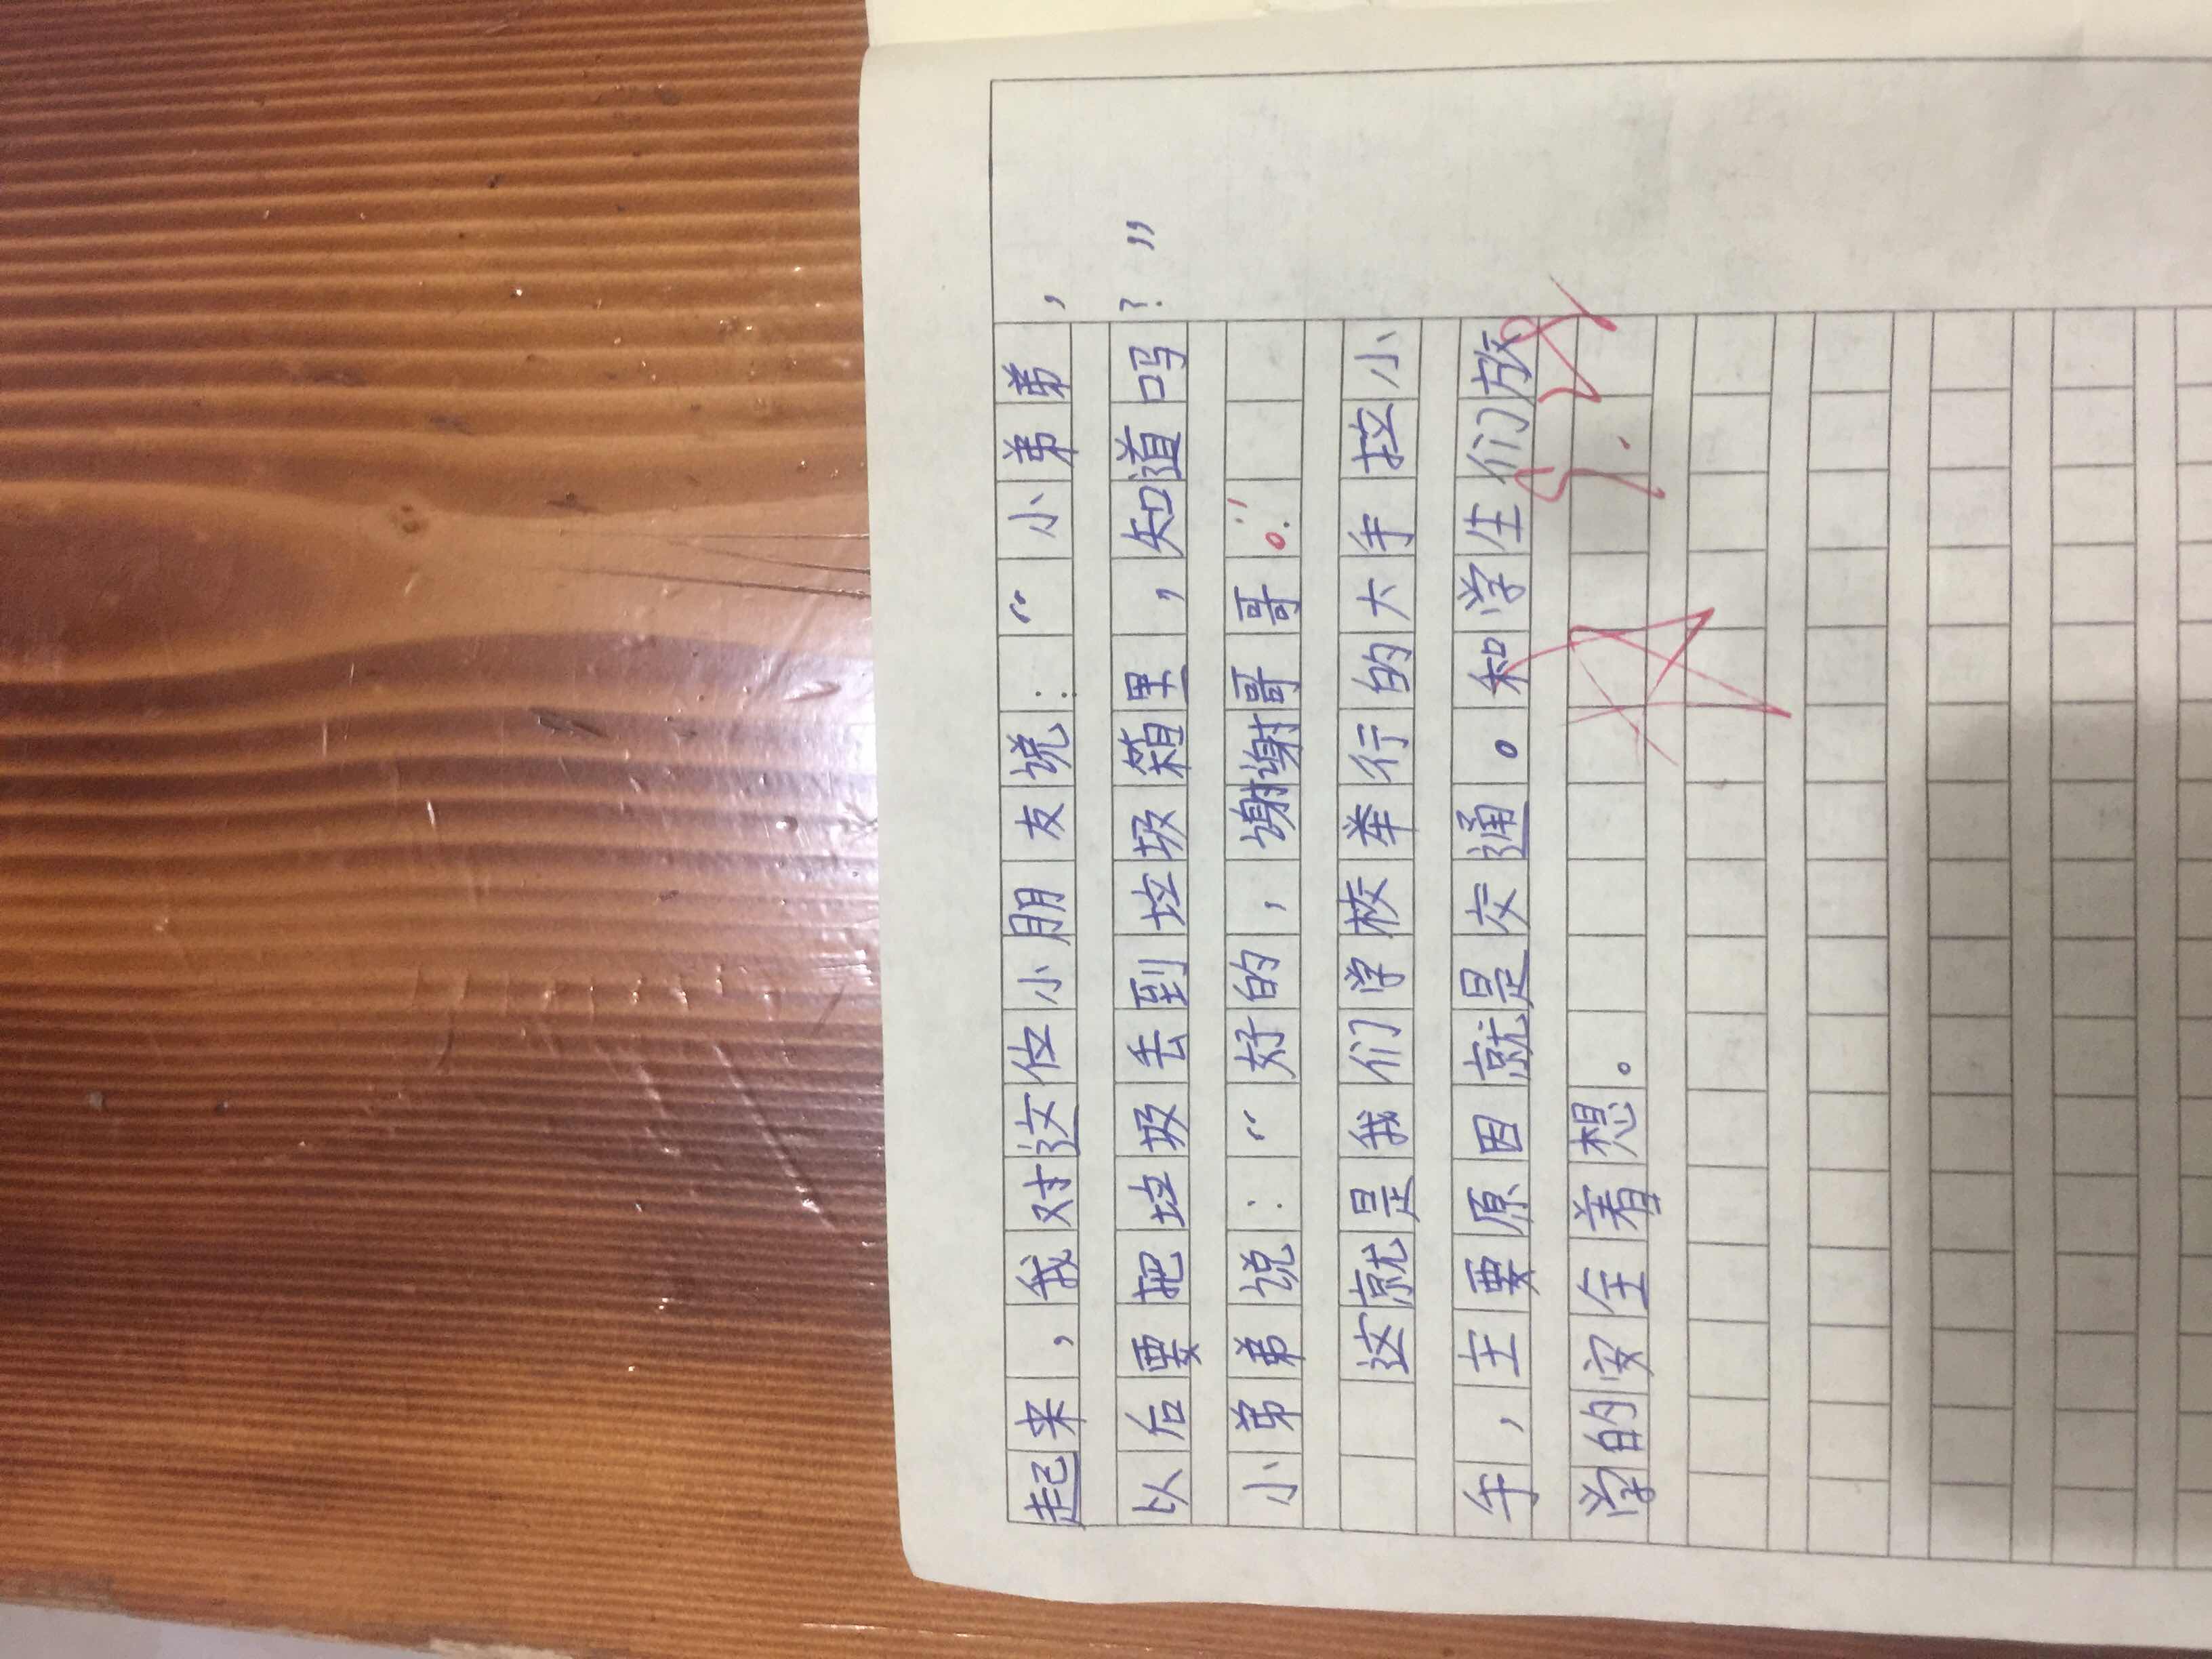 起来，我对这位小朋友说：“小弟弟，
以后要把垃圾丢到垃圾箱里，知道吗？”
小弟弟说：“好的，谢谢哥哥。”
这就是我们学校举行的大手拉小
手，主要原因就是交通。和学生们放
学的安全着想。